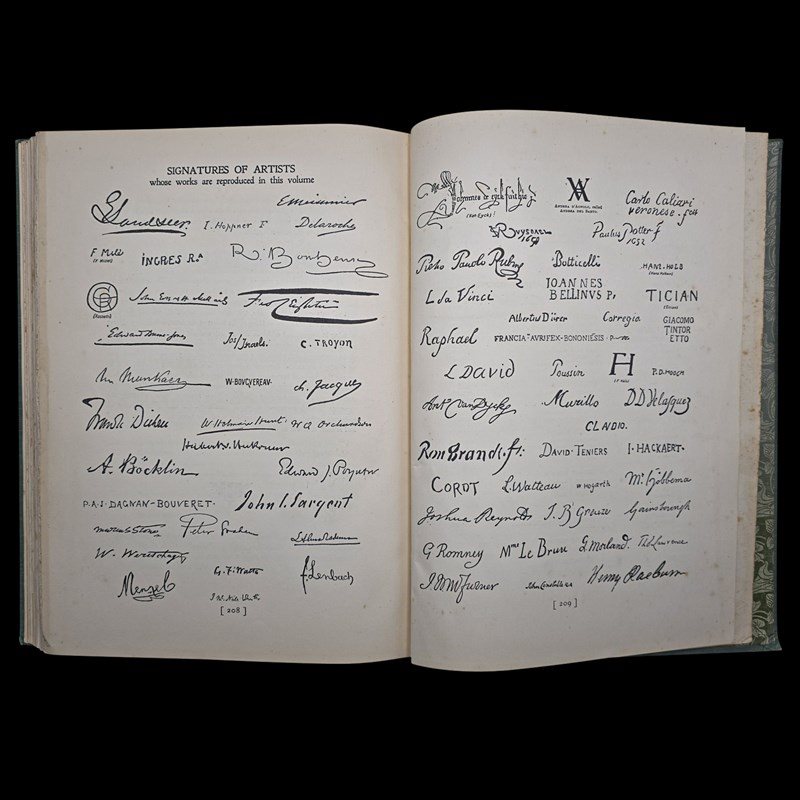 SIGNATURES OF ARTISTS
whose works are reproduced in this volume
E Meissonier
E Landseer. I. Hoppner F Delaroche
F Mill INGRES Ra R. Bonheur
(Rossetti)
Edward Burne-Jones Jos/Israels. C. TROYON
W-BOVGVEREAV- Ch. Jacque
Frank Dicksee W. Holman Hunt. W Q Orchardson
Hubert v. Herkomer
A. Böcklin Edward J. Poynter
P.A.J. DAGNAN-BOUVERET. John S. Sargent
Marcus Stone Peter Graham
W. Weretschagin
G. F. Watts f. Lenbach
Menzel
[ 208 ]
Johannes de eyck fuit hic
(Van Eyck)
VA
ANDREA D'AGNOLO, called
ANDREA DEL SARTO.
Carlo Caliari
Veronese. f
RUYSDAEL
Paulus Potter f
1652
Pietro Paolo Rubens Botticelli HANS HOLB
L da Vinci IOANNES
BELLINVS P, TICIAN
Albertus Dürer Corregia GIACOMO
TINTOR
ETTO
Raphael FRANCIA AVRIFEX-BONONIĒSIS.
L David Poussin FH P.D. HOOCH
Ant. van Dyck Murillo D D Velasquez
CLADIO.
Rembrandt. ft: DAVID·TENIERS I·HACKAERT.
COROT L. Watteau W Hogarth M: Hobbema
Joshua Reynolds J. B Greuze Gainsborough
G Romney Mme Le Brun G. Morland. Th Lawrence
J M W Turner John Constable Henry Raeburn
[ 209 ]